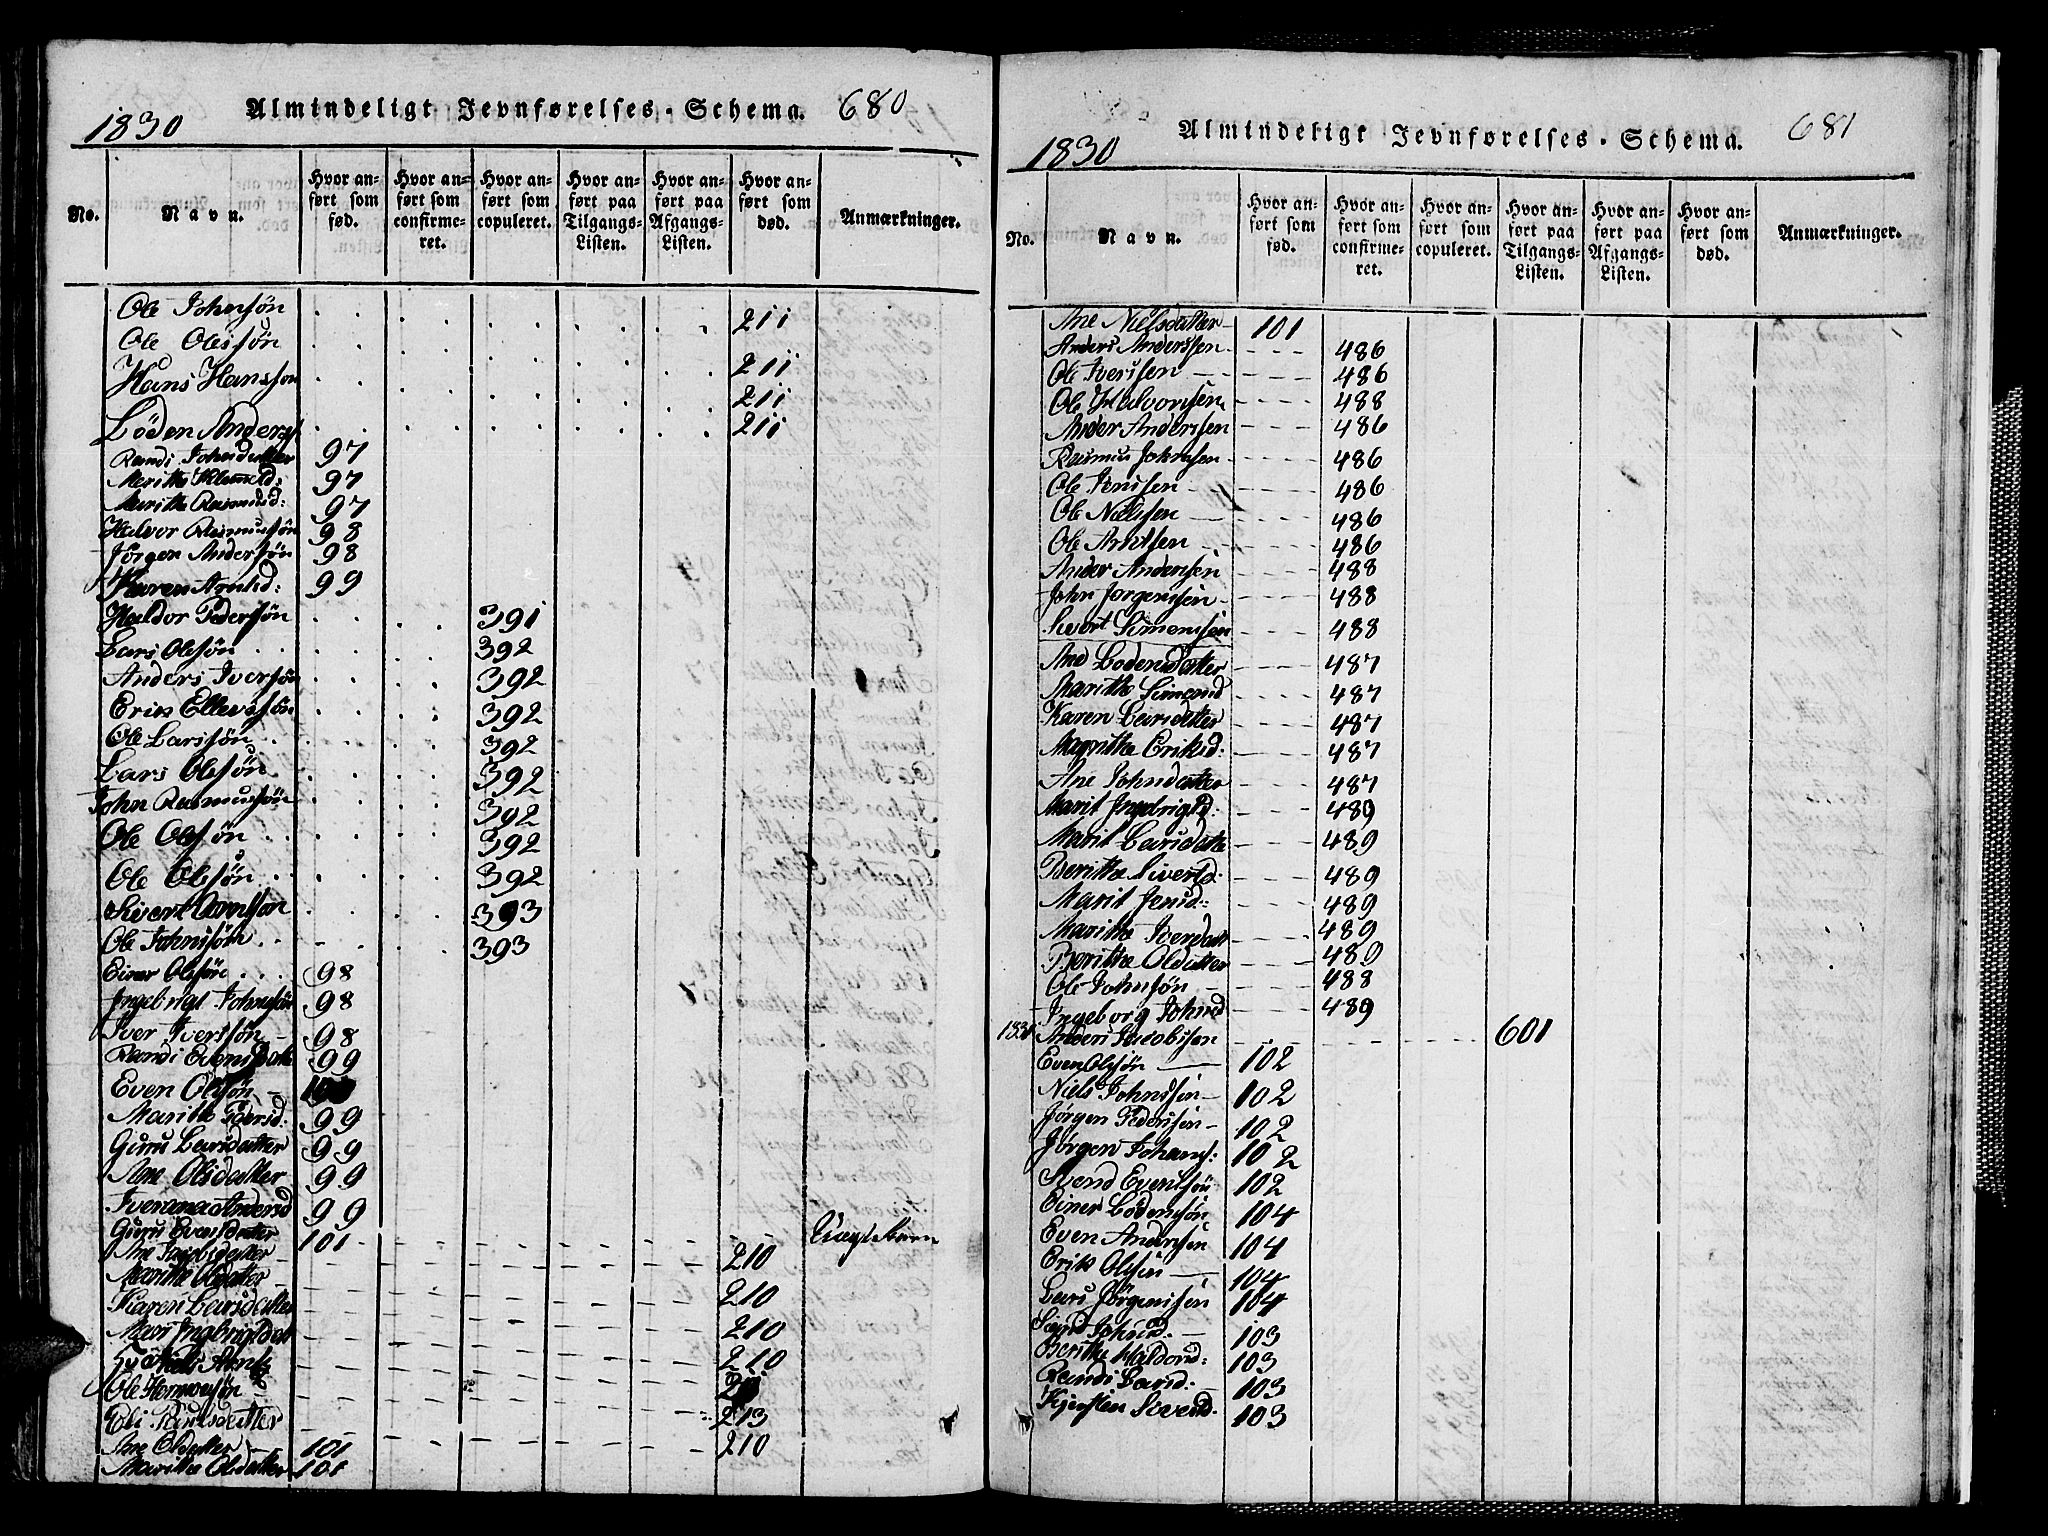 1830 Almindeligt Jevnførelses-Schema. 680
No. Navn. Hvor anført som fød. Hvor anført som confirmeret. Hvor anført som copuleret. Hvor anført paa Tilgangs-Listen. Hvor anført paa Afgangs-Listen. Hvor anført som død. Anmærkninger.
Ole Johnsøn 211
Ole Olessøn 211
Hans Hanssøn 211
Löden Anders 211
Randi Johnsdatter 97
Marithe 97
Marithe Rasmusd: 97
Halvor Rasmussøn 98
Jörgen Andersøn 98
Karen Arntsd: 99
Haldor Pedersøn 391
Lars Olsøn 392
Anders Iversøn 392
Erik Ellevsøn 392
Ole Larssøn 392
Lars Olesøn 392
John Rasmussøn 392
Ole Olsøn 392
Ole Olesøn 392
Sivert Arntsøn 393
Ole Johnssøn 393
Einer Olssøn 98
Ingebrigt Johnssøn 98
Iver Iverssøn 98
Randi Evensdatte 99
Even Olssøn
Marithe Pedersd: 99
Guru Larsdatter 99
Ane Olsdatter 99
Andersd 99
Guru Evensdatter 101
Ane Jacobsdatter 210
Marithe Olsdatter 210
Karen Larsdatter 210
Mari Ingbrigtsdat 210
Ole
Eli 213
Ane Olsdatter 101 210
Marithe Olsdatter 101
1830 Almindeligt Jevnførelses-Schema. 681
No. Navn. Hvor anført som fød. Hvor anført som confirmeret. Hvor anført som copuleret. Hvor anført paa Tilgangs-Listen. Hvor anført paa Afgangs-Listen. Hvor anført som død. Anmærkninger.
Ane Nielsdatter 101
Anders Anderssen 486
Ole Iversen 486
Ole Halvorsen 488
Ander Andersen 486
Rasmus Johnsen 486
Ole Jensen 486
Ole Nielssen 486
Ole Arntsen 486
Ander Andersen 488
John Jørgenssen 488
Sivert Simensen 488
Ane Lodensdatter 487
Marithe Simensd 487
Karen Larsdatter 487
Magrithe Eriksd: 487
Ane Johnsdatter 487
Marit Ingebrigtsd: 489
Marit Larsdatte 489
Berithe Sivertsd: 489
Marit Jensd: 489
Marithe Iversdatt 489
Berithe Olsdatter 489
Ole Johnsøn 488
Ingeborg Johnsd 489
1831 Anders Jacobsen 601
Even Olssøn 102
Niels Johnssøn 102
Jørgen Pedersen 102
Jørgen Johans: 102
Svend Eventsøn 102
Einer Lödenssøn 104
Even Andersen 104
Erik Olssen 104
Lars Jørgenssen 104
Johnsd: 103
Berithe Haldorsd: 103
Randi Larsd: 103
Kjersten Sivertsd. 103